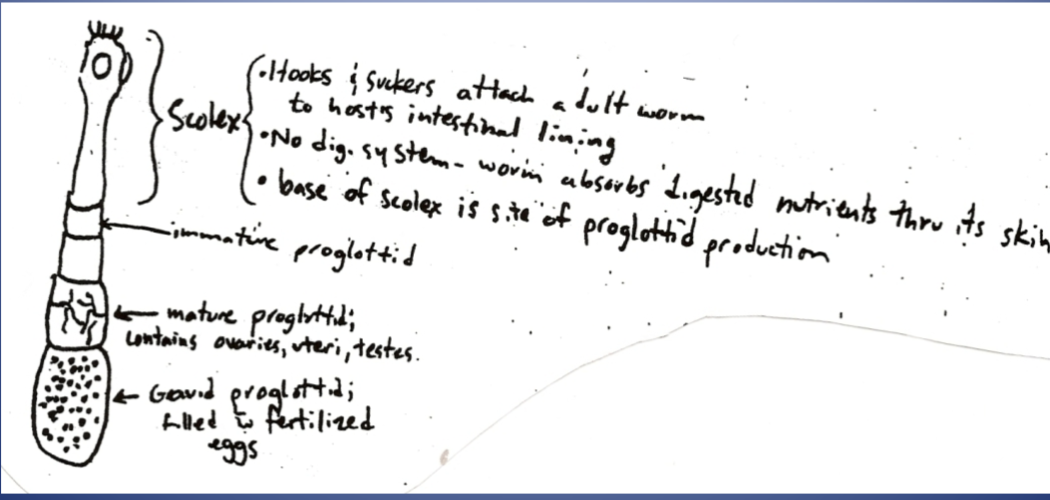 Scolex
• Hooks & suckers attach adult worm
to host's intestinal lining
• No dig. system - worm absorbs digested nutrients thru its skin
• base of scolex is site of proglottid production
immature proglottid
mature proglottid;
contains ovaries, uteri, testes.
Gravid proglottid;
filled w fertilized
eggs